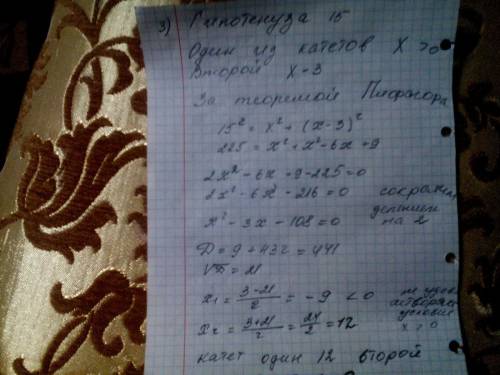 3) Гипотенуза 15
Один из катетов X > 0
Второй X-3
За теоремой Пифагора
15² = X² + (X-3)²
225 = X² + X² - 6X + 9
2X² - 6X + 9 - 225 = 0
2X² - 6X - 216 = 0 сократим
делением
на 2
X² - 3X - 108 = 0
D = 9 + 432 = 441
√D = 21
X₁ = (3-21)/2 = -9 < 0 не удов
летворяет
условию
X > 0
X₂ = (3+21)/2 = 24/2 = 12
катет один 12 второй